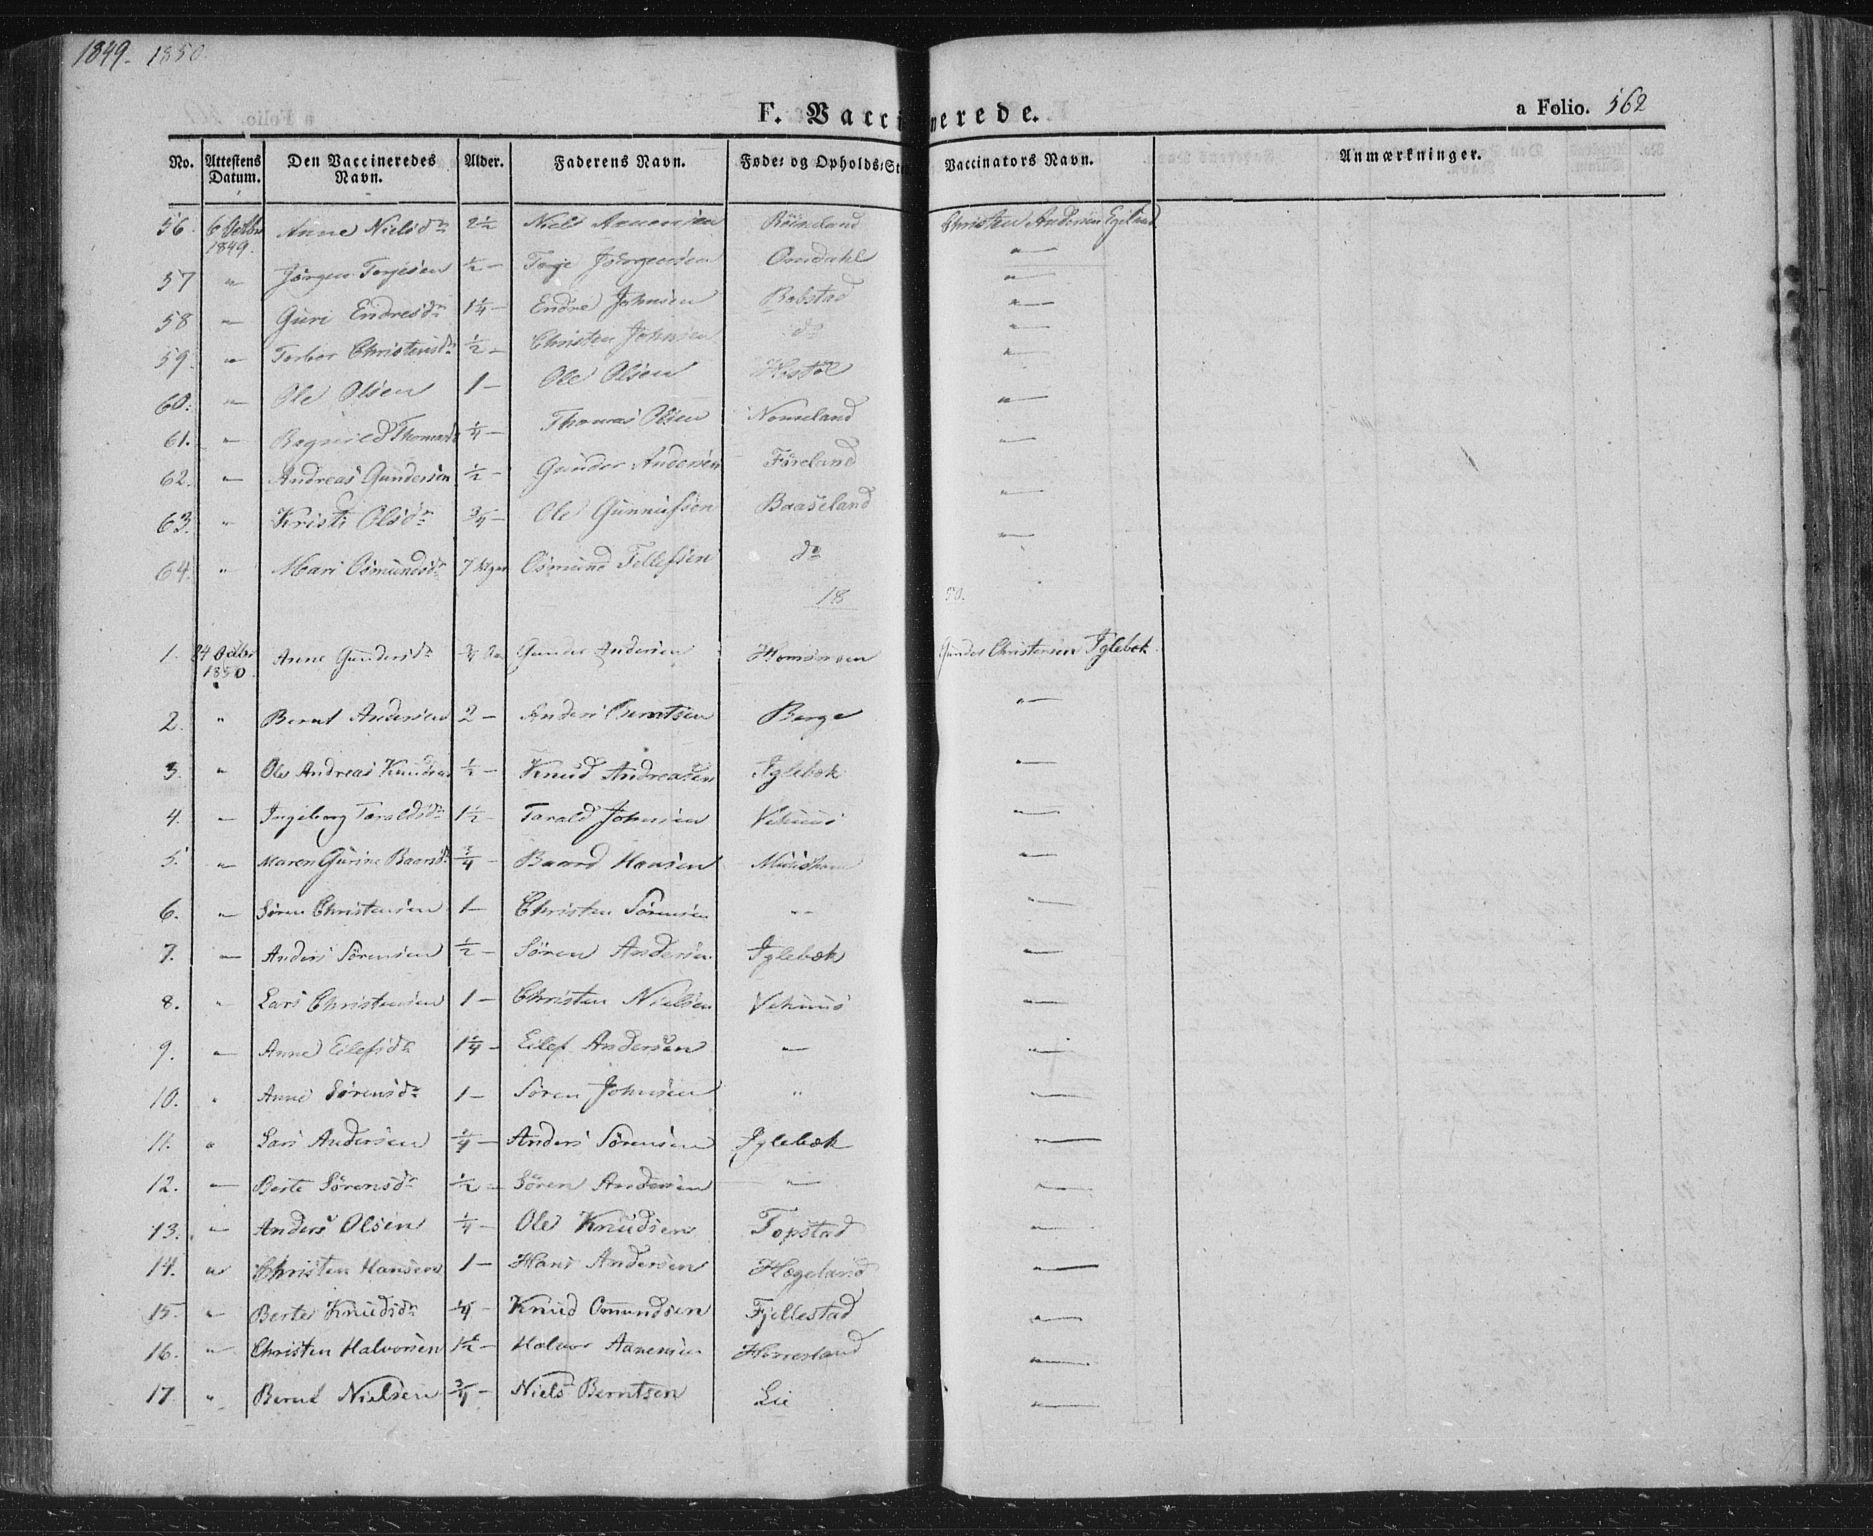 1849. 1850.
F. Vaccinerede.
a Folio. 562
No. Attestens Datum. Den Vaccineredes Navn. Alder. Faderens Navn. Føde- og Opholds-Sted Vaccinators Navn. Anmærkninger.
56. 6 Octbr 1849. Anne Nielsdr 2½ Niels Aanensen Røiseland Christen Andersen Egeland
57 " Jörgen Terjesen ½ – Terje Jörgensen Omdahl "
58 " Guri Endresdr 1¼ – Endre Johnsen Robstad "
59. " Torbor Christensdr ½ – Christen Johnsen do "
60. " Ole Olsen 1 – Ole Olsen "
61. " Thomasdr ¼ – Thomas Olsen Nomeland "
62. " Andreas Gundersen ½ – Gunder Andersen "
63. " Kristi Olsdr ¾ – Ole Gunnufsen Baaseland "
64. " Mari Osmundsdr 7 Osmund Tellefsen do "
18 50.
1. 24 Octbr 1850. Anne Gundersdr Gunder Andersen Gunder Christensen Iglebek
2. " Bernt Andersen 2 – Anders Berntsen Berge "
3. " Ole Andreas Knudsen ½ – Knud Andreasen Iglebek "
4. " Ingeborg Taraldsdr 1½ – Tarald Johnsen Vehuus "
5. " Maren Gurine Baardsdr ¾ – Baard Hansen "
6. " Sören Christensen 1 – Christen Sörensen " "
7. " Anders Sörensen ½ – Sören Andersen Iglebek "
8. " Lars Christensen 1 – Christen Nielsen Vehuus "
9. " Anne Eilefsdr 1¼ – Eilef Andersen " "
10. " Anne Sörensdr 1 – Sören Johnsen " "
11. " Lars Andersen ¼ – Anders Sörensen Iglebek "
12. " Berte Sörensdr ½ – Sören Andersen " "
13. " Anders Olsen ¼ – Ole Knudsen Topstad "
14. " Christen Hansen 1 – Hans Andersen Hægeland "
15. " Berte Knudsdr ¼ – Knud Omundsen Fjellestad "
16. " Christen Halvorsen 1½ – Halvor Aanensen "
17. " Bernt Nielsen ¾ – Niels Berntsen Lie "